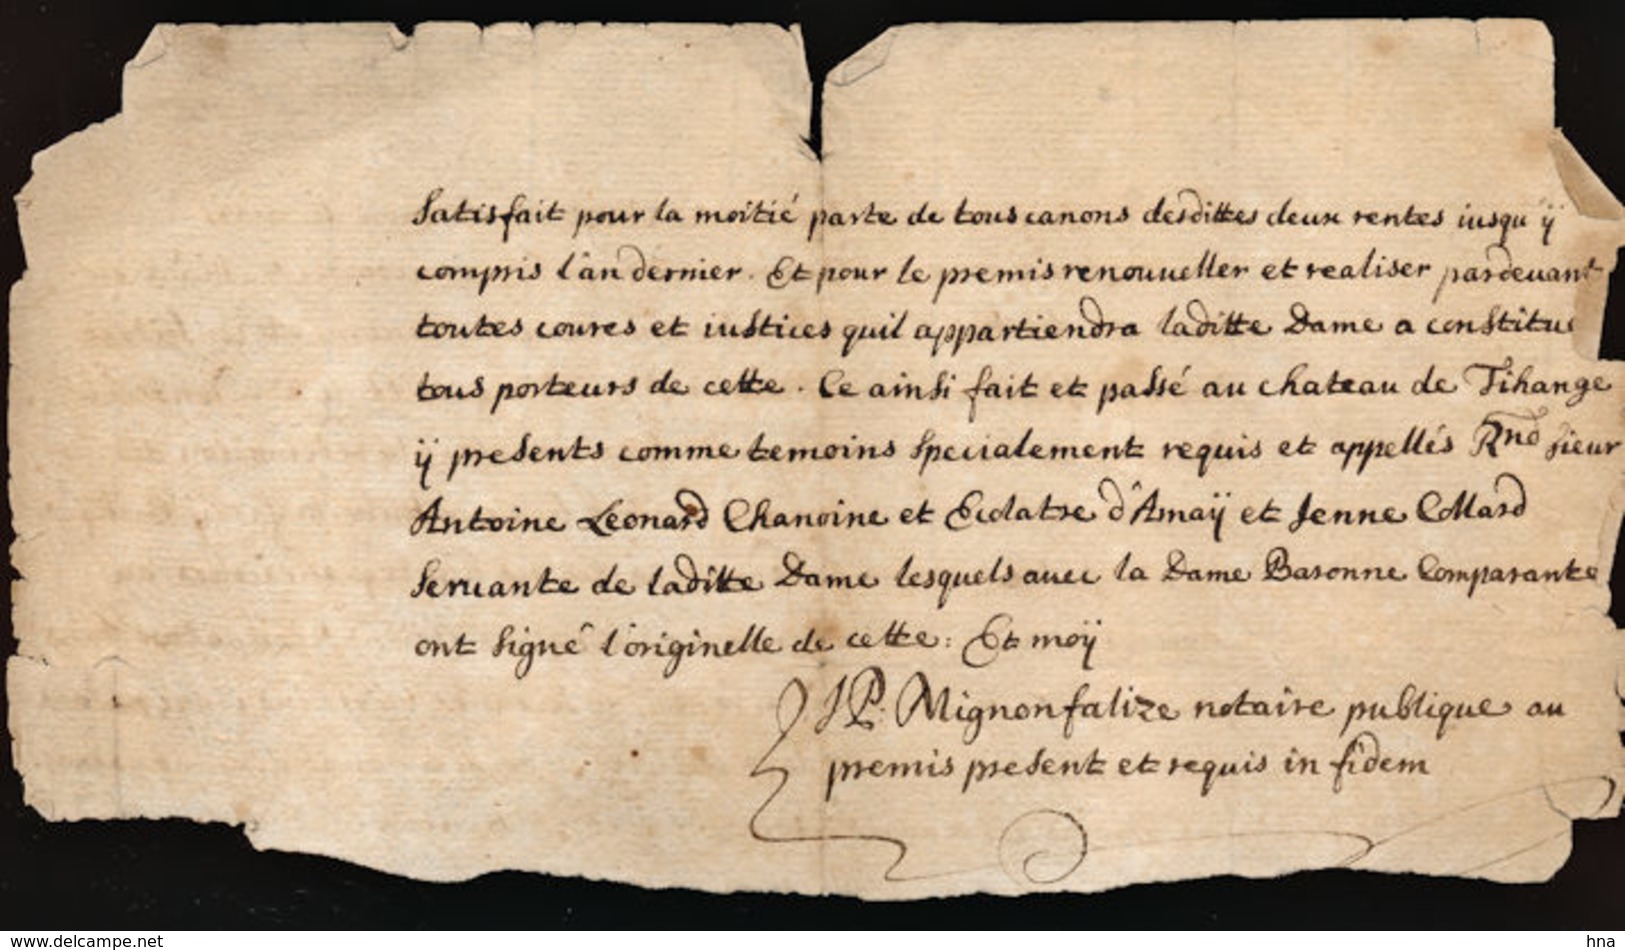 Satisfait pour la moitié parte de tous canons desdittes deux rentes iusqu'ÿ
compris l'an dernier. Et pour le premis renouueller et realiser pardeuant
toutes coures et iustices quil appartiendra laditte Dame a constitue
tous porteurs de cette. Ce ainsi fait et passé au chateau de Tihange
ÿ presents comme temoins specialement requis et appellés Rnd sieur
Antoine Leonard Chanoine et Ecolatre d'Amaÿ et Jenne Collard
Seruante de laditte Dame lesquels auec la Dame Baronne Comparante
ont signé l'originelle de cette: Et moÿ
JP: Mignonfalize notaire publique au
premis present et requis in fidem
www.delcampe.net
hna